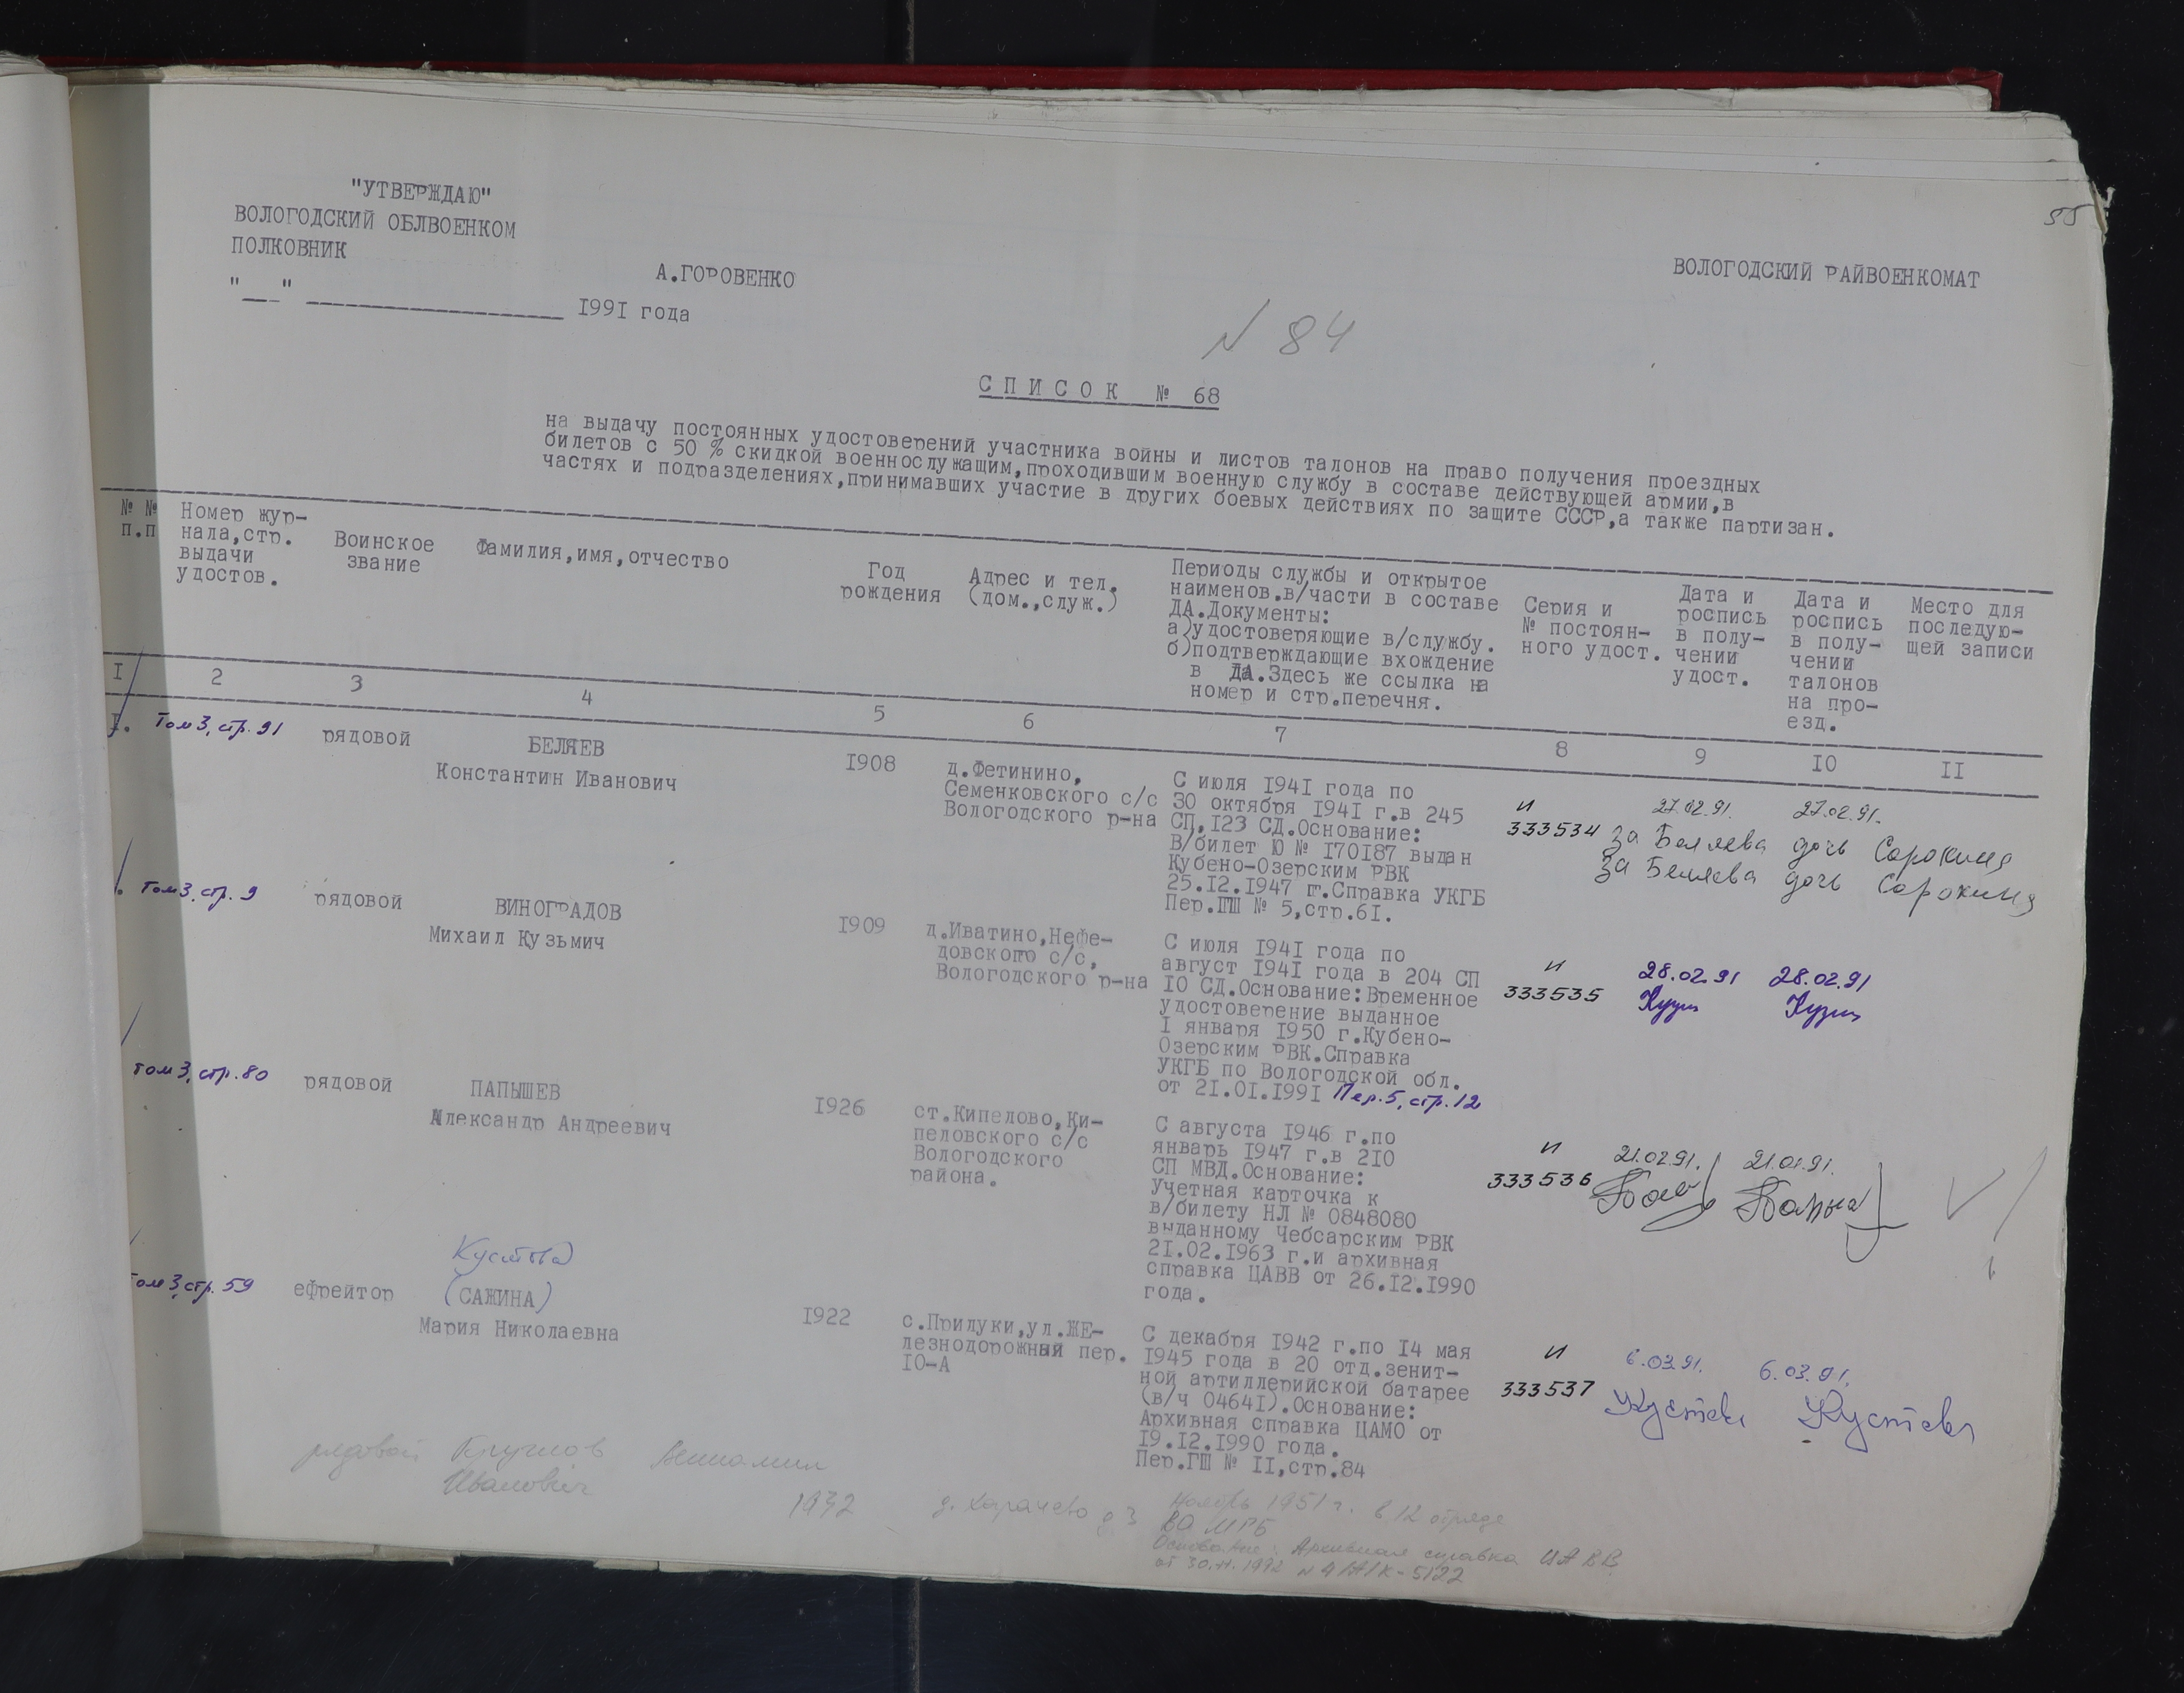 55
"УТВЕРЖДАЮ"
ВОЛОГОДСКИЙ ОБЛВОЕНКОМ
ПОЛКОВНИК
А.ГОРОВЕНКО
"___" ____________________ 1991 года
ВОЛОГОДСКИЙ РАЙВОЕНКОМАТ
N 84
СПИСОК № 68
на выдачу постоянных удостоверений участника войны и листов талонов на право получения проездных
билетов с 50 % скидкой военнослужащим,проходившим военную службу в составе действующей армии,в
частях и подразделениях,принимавших участие в других боевых действиях по защите СССР,а также партизан.
№ №
п.п
Номер жур-
нала,стр.
выдачи
удостов.
Воинское
звание
Фамилия,имя,отчество
Год
рождения
Адрес и тел.
(дом.,служ.)
Периоды службы и открытое
наименов.в/части в составе
ДА.Документы:
а)удостоверяющие в/службу.
б)подтверждающие вхождение
в ДА.Здесь же ссылка на
номер и стр.перечня.
Серия и
№ постоян-
ного удост.
Дата и
роспись
в полу-
чении
удост.
Дата и
роспись
в полу-
чении
талонов
на про-
езд.
Место для
последую-
щей записи
I 2 3 4 5 6 7 8 9 IO II
I. Том 3, стр. 91 рядовой БЕЛЯЕВ
Константин Иванович
I908
д.Фетинино,
Семенковского с/с
Вологодского р-на
С июля I94I года по
30 октября I94I г.в 245
СП,I23 СД.Основание:
В/билет Ю № I70I87 выдан
Кубено-Озерским РВК
25.I2.I947 г.Справка УКГБ
Пер.ГШ № 5,стр.6I.
И
333534
27.02.91. 27.02.91.
за Беляева дочь Сорокина
За Беляева дочь Сорокина
Том 3, стр. 9 рядовой ВИНОГРАДОВ
Михаил Кузьмич
I909
д.Иватино,Нефе-
довского с/с,
Вологодского р-на
С июля I94I года по
август I94I года в 204 СП
IO СД.Основание:Временное
удостоверение выданное
I января I950 г.Кубено-
Озерским РВК.Справка
УКГБ по Вологодской обл.
от 2I.OI.I99I Пер.5, стр.12
И
333535
28.02.91 28.02.91
Том 3, стр. 80 рядовой ПАПЫШЕВ
Александр Андреевич
I926
ст.Кипелово,Ки-
пеловского с/с
Вологодского
района.
С августа I946 г.по
январь I947 г.в 2IO
СП МВД.Основание:
Учетная карточка к
в/билету НЛ № 0848080
выданному Чебсарским РВК
2I.02.I963 г.и архивная
справка ЦАВВ от 26.I2.I990
года.
И
333536
21.02.91. 21.01.91.
Том 3, стр. 59 ефрейтор (САЖИНА)
Мария Николаевна
I922
с.Прилуки,ул.ЖЕ-
лезнодорожный пер.
IO-А
С декабря I942 г.по I4 мая
I945 года в 20 отд.зенит-
ной артиллерийской батарее
(в/ч 0464I).Основание:
Архивная справка ЦАМО от
I9.I2.I990 года.
Пер.ГШ № II,стр.84
И
333537
6.03.91. 6.03.91.
рядовой Круглов Вениамин
Иванович
1932
д. Харачево д 3
Ноябрь 1951 г. в 12 отряде
Основание: Архивная справка ЦАВВ